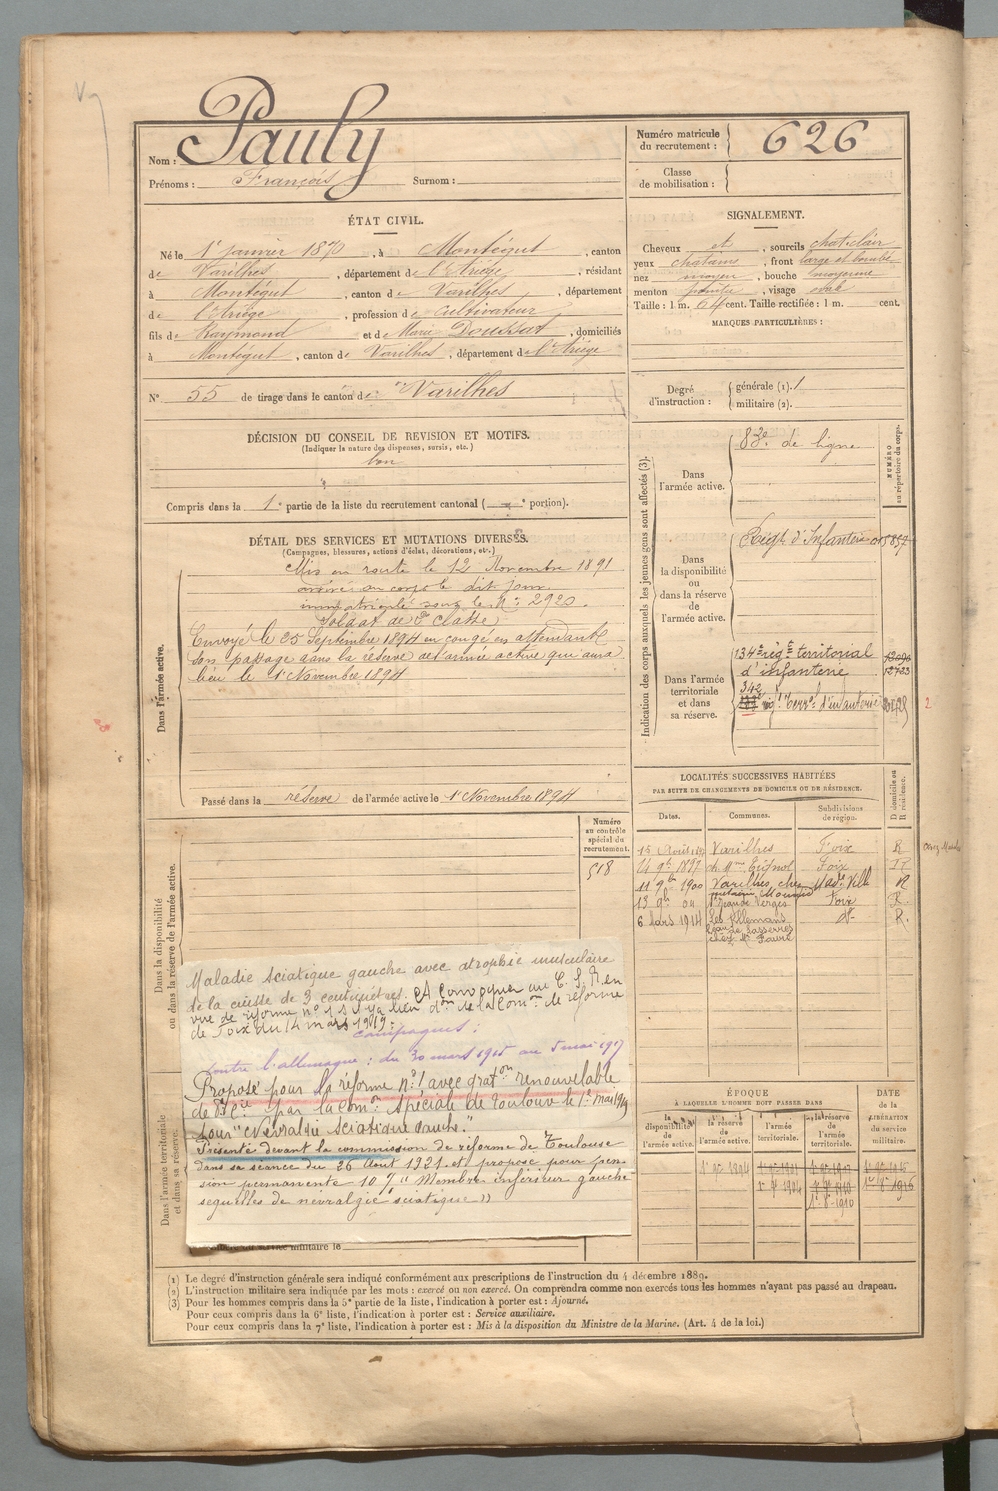 Nom : Pauly
Prénoms : François Surnom :
Numéro matricule du recrutement : 626
Classe de mobilisation :
ÉTAT CIVIL.
Né le 1er janvier 1870, à Montégut, canton
de Varilhes, département de l'Ariège, résidant
à Montégut, canton de Varilhes, département
de l'Ariège, profession de cultivateur
fils de Raymond et de Marie Doussat, domiciliés
à Montégut, canton de Varilhes, département de l'Ariège
N° 55 de tirage dans le canton de Varilhes
SIGNALEMENT.
Cheveux et, sourcils chat. clair
yeux chatains, front large et bombé
nez moyen, bouche moyenne
menton pointu, visage ovale
Taille : 1 m. 64 cent. Taille rectifiée : 1 m. cent.
MARQUES PARTICULIÈRES :
Degré d'instruction : générale (1). 1
militaire (2).
DÉCISION DU CONSEIL DE REVISION ET MOTIFS.
(Indiquer la nature des dispenses, sursis, etc.)
bon
Compris dans la 1e partie de la liste du recrutement cantonal ( e portion).
DÉTAIL DES SERVICES ET MUTATIONS DIVERSES.
(Campagnes, blessures, actions d'éclat, décorations, etc.)
Dans l'armée active.
Mis en route le 12 Novembre 1891
arrivé au corps le dit jour
immatriculé sous le N° 2920.
Soldat de 2e classe
Envoyé le 25 Septembre 1894 en congé en attendant
son passage dans la réserve de l'armée active qui aura
lieu le 1er Novembre 1894
Passé dans la réserve de l'armée active le 1er Novembre 1894
Indication des corps auxquels les jeunes gens sont affectés (3).
NUMÉRO au répertoire du corps.
Dans l'armée active.
83e de ligne
Dans la disponibilité ou dans la réserve de l'armée active.
Régt d'Infanterie
Dans l'armée territoriale et dans sa réserve.
134e régt territorial
d'infanterie
12733
342
régt terral d'infanterie
2
LOCALITÉS SUCCESSIVES HABITÉES
PAR SUITE DE CHANGEMENTS DE DOMICILE OU DE RÉSIDENCE.
Dates. Communes. Subdivisions de région. D domicile ou R résidence.
15 Août Varilhes Foix R
24 9bre 1897 ch. Foix
11 9bre 1900 Varilhes, chez R
13 9bre 01 St Jean de Verges Foix R.
6 Mars 1914 Les Allemans do R.
Dans la disponibilité ou dans la réserve de l'armée active.
Numéro au contrôle spécial du recrutement.
518
Maladie sciatique gauche avec atrophie musculaire
de la cuisse de 3 centimètres. A convoquer au C. S. R. en
vue de réforme n° 1 s'il y a lieu don de la Comon de réforme
de Foix du 14 mars 1917.
Campagnes :
contre l'allemagne : du 30 mars 1915 au 5 mai 1917
Proposé pour la réforme n° 1 avec graton renouvelable
de 8e Cie par la Comon spéciale de Toulouse le 1er mai 1919
pour "Névralgie sciatique gauche."
Présenté devant la commission de réforme de Toulouse
dans sa séance du 26 Août 1921 et proposé pour pen-
sion permanente 10 % "Membre inférieur gauche
sequelles de névralgie sciatique"
Dans l'armée territoriale et dans sa réserve.
ÉPOQUE
À LAQUELLE L'HOMME DOIT PASSER DANS
la disponibilité de l'armée active. la réserve de l'armée active. l'armée territoriale. la réserve de l'armée territoriale.
DATE de la LIBÉRATION DU service militaire.
1er 9bre 1894
1er 8bre 1910
(1) Le degré d'instruction générale sera indiqué conformément aux prescriptions de l'instruction du 4 décembre 1889.
(2) L'instruction militaire sera indiquée par les mots : exercé ou non exercé. On comprendra comme non exercés tous les hommes n'ayant pas passé au drapeau.
(3) Pour les hommes compris dans la 5e partie de la liste, l'indication à porter est : Ajourné.
Pour ceux compris dans la 6e liste, l'indication à porter est : Service auxiliaire.
Pour ceux compris dans la 7e liste, l'indication à porter est : Mis à la disposition du Ministre de la Marine. (Art. 4 de la loi.)